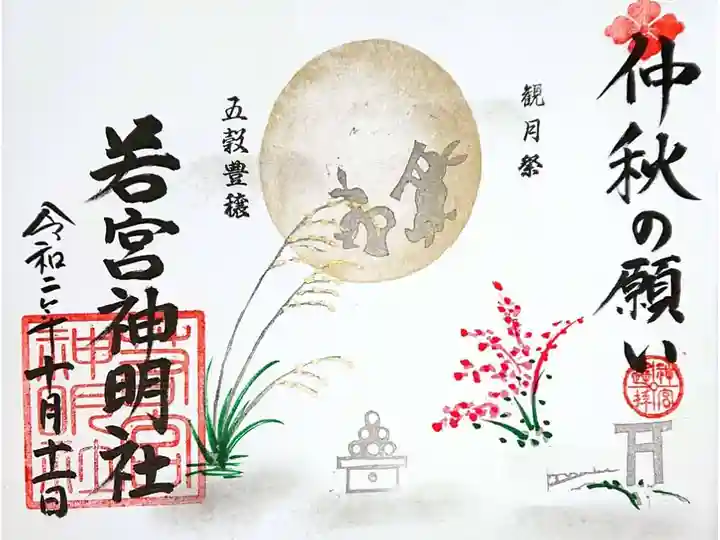 仲秋の願い
観月祭
五穀豊穣
若宮神明社
令和二年十月十一日